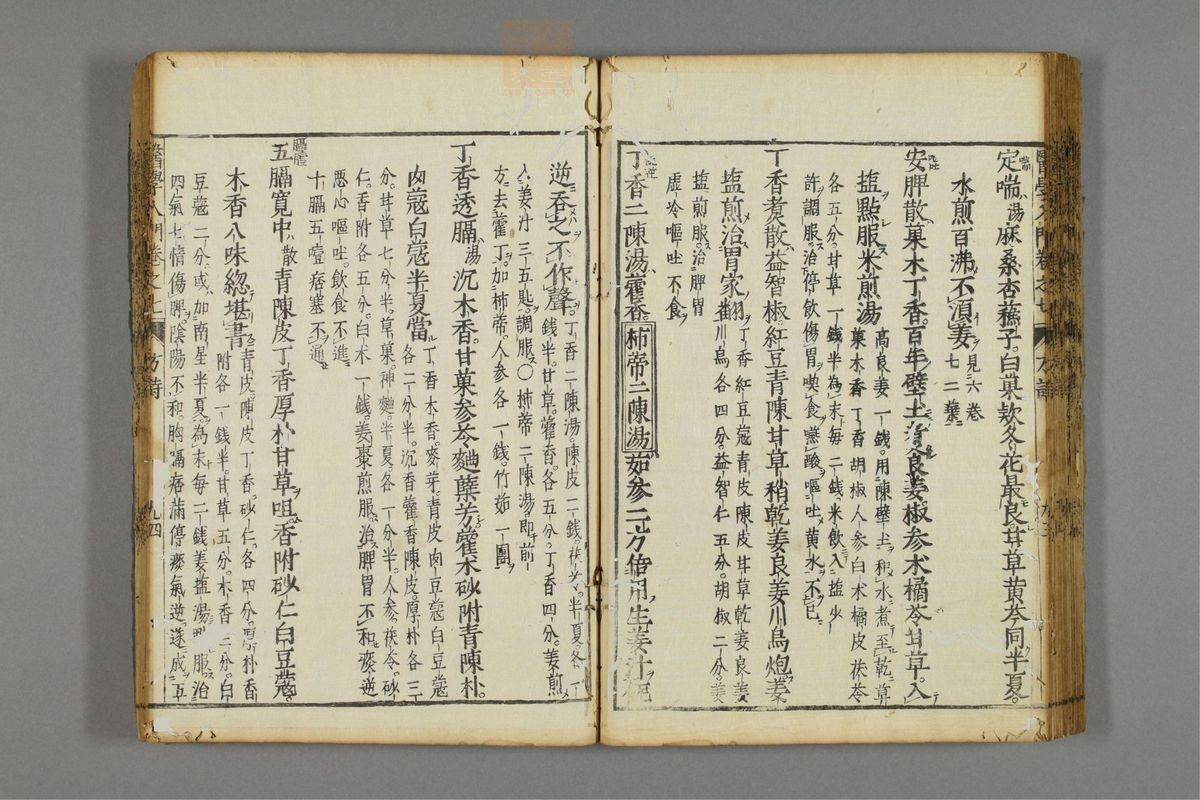 醫學入門卷之七 方詩 九三
喘 定喘湯麻桑杏蘓子白菓欵冬花最良甘草黃芩同半夏
水煎百沸不須姜 見六卷七二葉
嘔吐 安脾散菓木丁香百年壁土煮良姜椒参术橘苓甘草入
塩㸃服米煎湯 高良姜一錢用陳壁土和水煮至乾草
菓木香丁香胡椒人参白术橘皮茯苓
各五分甘草一錢半為末每二錢米飲入塩少
許調服治停飲傷胃喫食嚥酸嘔吐黄水不已
丁香煮散益智椒紅豆青陳甘草稍乾姜良姜川烏炮姜
塩煎治胃家翻 丁香紅豆蔻青皮陳皮甘草乾姜良姜
川烏各四分益智仁五分胡椒二分姜
塩煎服治脾胃
虚冷嘔吐不食
呃逆 丁香二陳湯藿香 柿帝二陳湯 茹参二方俻用生姜汁
逆吞之不作聲 丁香二陳湯陳皮二錢茯苓半夏各一
錢半甘草藿香各五分丁香四分姜煎
入姜汁三五匙調服〇柿帝二陳湯即前
方去藿丁加柿帝人参各一錢竹茹一團
丁香透膈湯沉木香甘菓参苓麯蘗芳藿术砂附青陳朴
肉蔻白蔻半夏當 丁香木香麥芽青皮肉豆蔻白豆蔻
各二分半沉香藿香陳皮厚朴各三
分甘草七分半草菓神麯半夏各一分半人参茯苓砂
仁香附各五分白术一錢姜棗煎服治脾胃不和痰逆
惡心嘔吐飲食不進
十膈五噎痞塞不通
膈噎 五膈寛中散青陳皮丁香厚朴甘草咀香附砂仁白豆蔻
木香八味緫堪書 青皮陳皮丁香砂仁各四分厚朴香
附各一錢半甘草五分木香三分白
豆蔻二分或加南星半夏為末每二錢姜塩湯服治
四氣七情傷脾陰陽不和胸膈痞滿停痰氣逆遂成五
醫學入門卷之七 方詩 九四